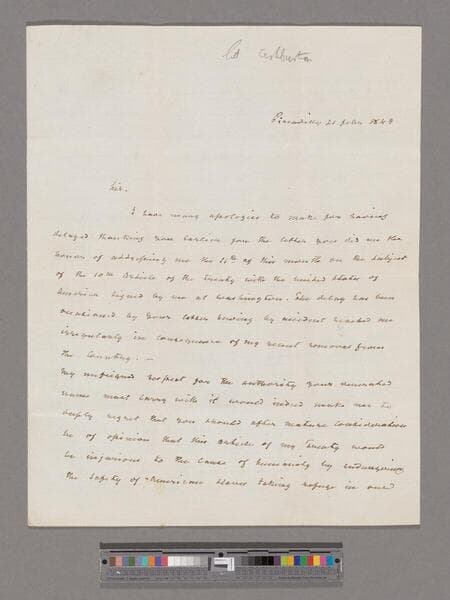 Ld Ashburton
Piccadilly 21 febry 1843
Sir.
I have many apologies to make for having
delayed thanking you earlier for the letter you did me the
honor of addressing me the 11th of this month on the subject
of the 10th Article of the treaty with the united states of
America signed by me at Washington. The delay has been
occasioned by your letter having by accident reached me
irregularly in consequence of my recent removal from
the Country. —
My unfeigned respect for the authority your venerated
name must carry with it would indeed make me to
deeply regret that you should after mature consideration
be of opinion that this article of my Treaty would
be injurious to the Cause of humanity by endangering
the safety of American slaves taking refuge in our